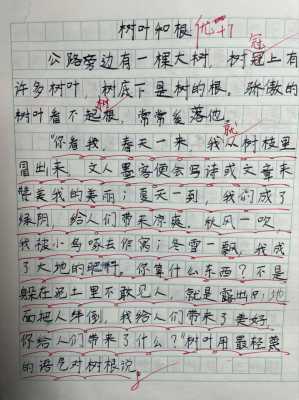 树叶和根 优+1
冠
公路旁边有一棵大树，树冠上有
许多树叶，树底下是树的根。骄傲的
树
树叶看不起根，常常奚落他。
就
“你看我，春天一来，我从树枝里
冒出来，文人墨客便会写诗或文章来
赞美我的美丽；夏天一到，我们成了
绿阴，给人们带来凉爽。秋风一吹
我被小鸟啄去作窝；冬雪一飘，我成
了大地的肥料。你算什么东西？不是
躲在泥土里不敢见人，就是露出来地
面把人绊倒，我给人们带来了美好，
你给人们带来了什么？”树叶用最轻蔑
的语气对树根说。